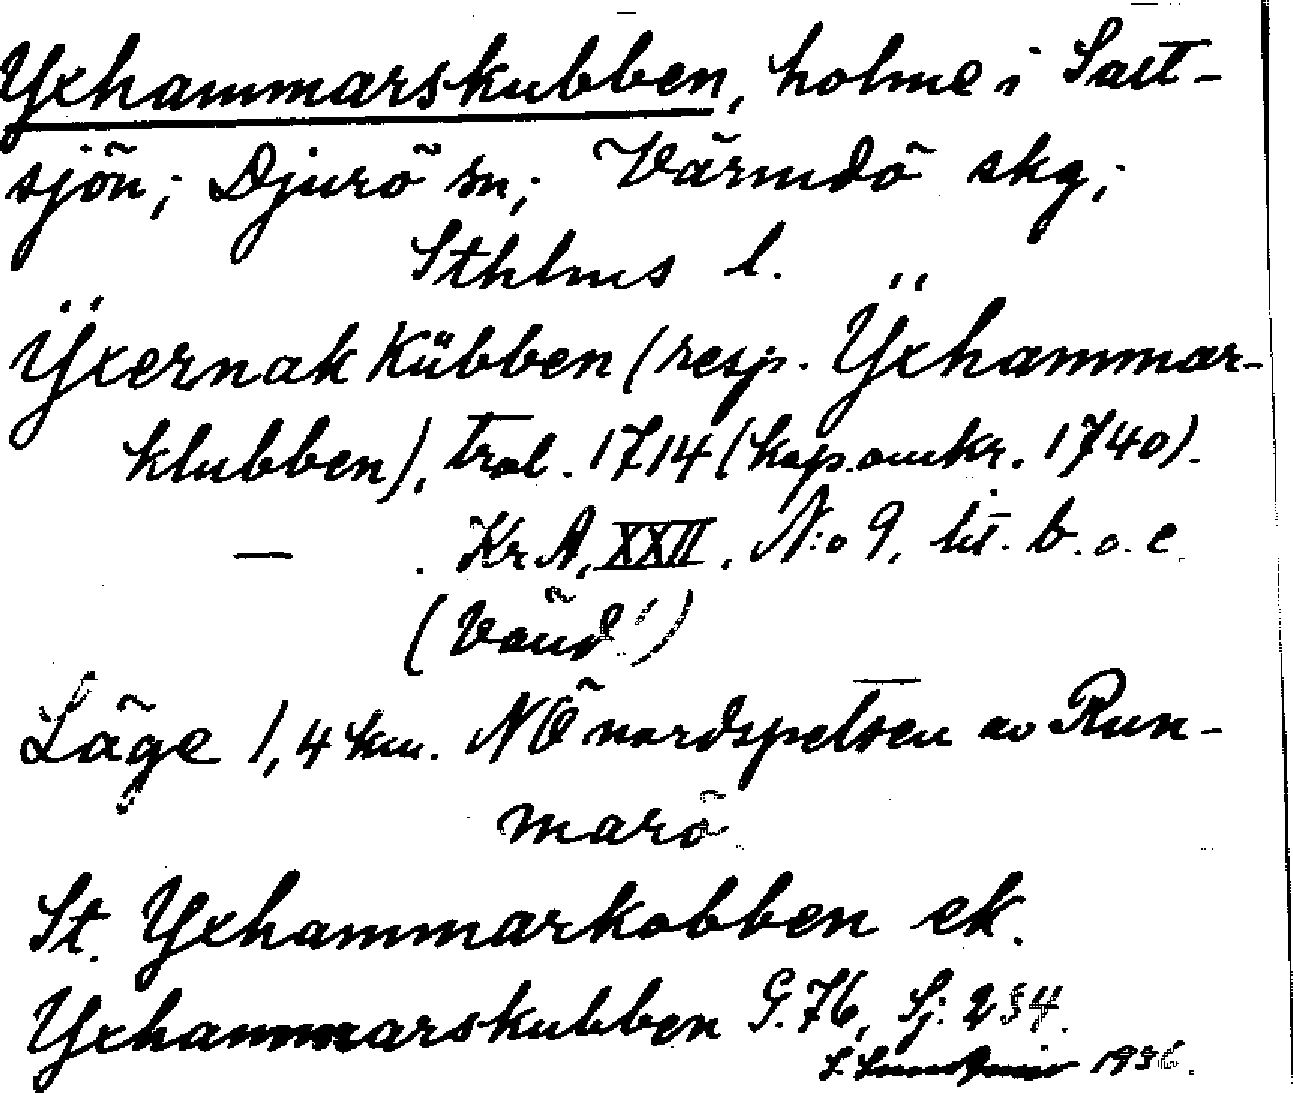 Yxhammarskubben, holme i Salt-
sjön; Djurö sn; Värmdö skg;
Sthlms l.
Ÿxernak Kübben (resp. Ÿxhammar-
klubben), trol. 1714 (kop. omkr. 1740).
— . Kr A, XXII, N:o 9, lit. b. o. c
(Vänd!)
Läge 1,4 km. NÖ nordspetsen av Run-
marö
St. Yxhammarkobben ek.
Yxhammarskubben G. 76, Sj: 234.
S. 1936.